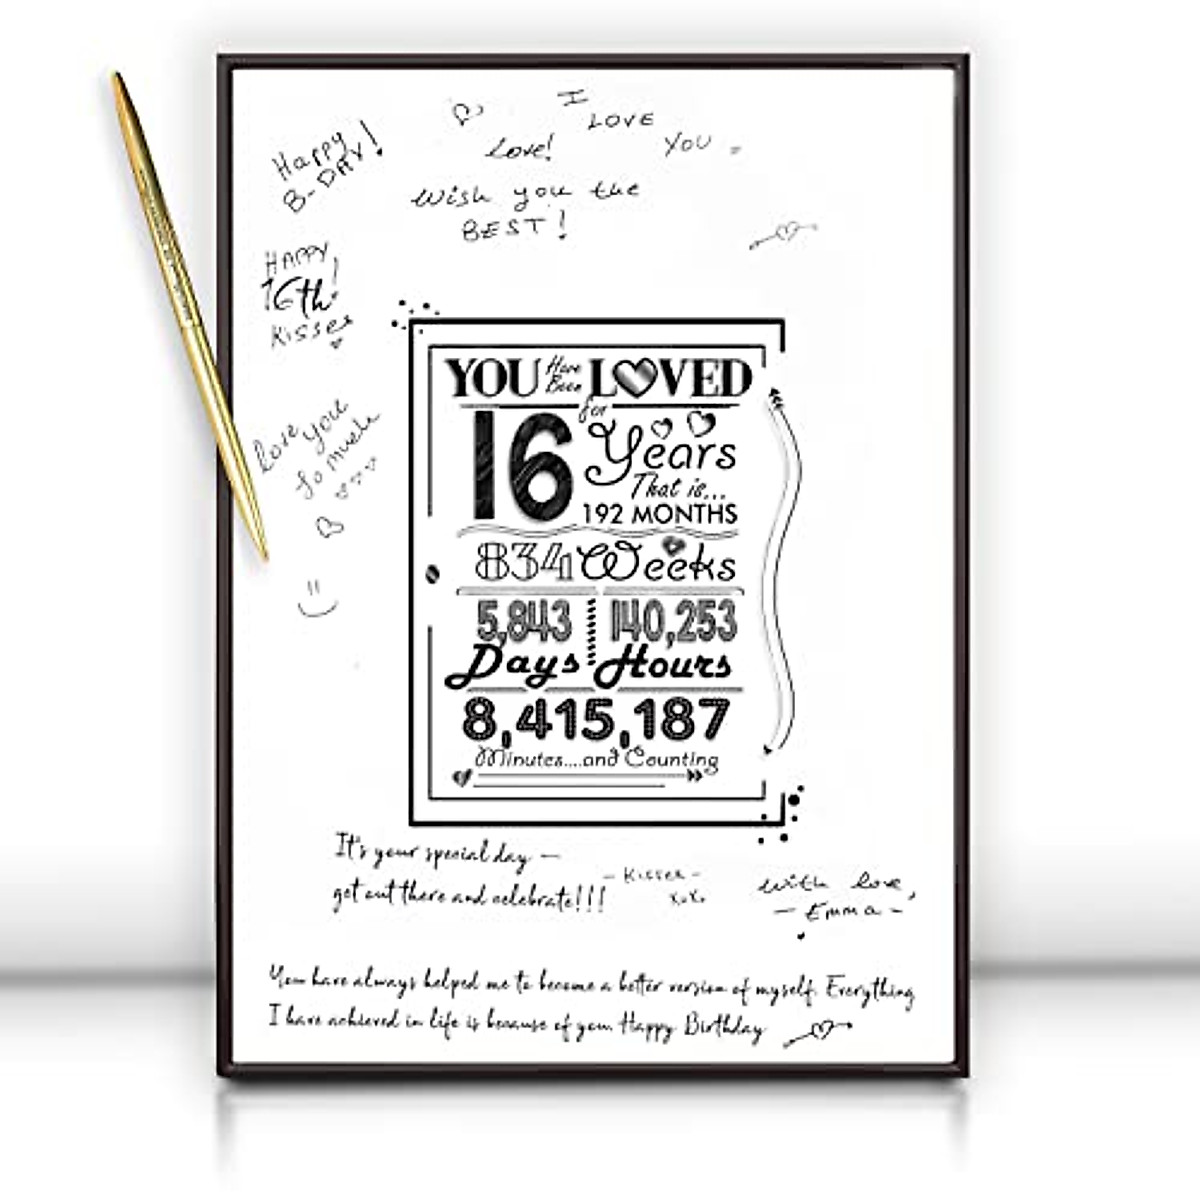 I
LOVE
YOU
Love!
Happy
B-DAY!
Wish you the
BEST!
HAPPY
16th!
Kisses
YOU Have Been LOVED
for
16 Years
That is...
192 MONTHS
Love you
so much
834 Weeks
5,843 140,253
Days Hours
8,415,187
Minutes....and Counting
It's your special day —
get out there and celebrate!!!
- Kisses -
xoxo
with love,
- Emma -
You have always helped me to become a better version of myself. Everything
I have achieved in life is because of you. Happy Birthday